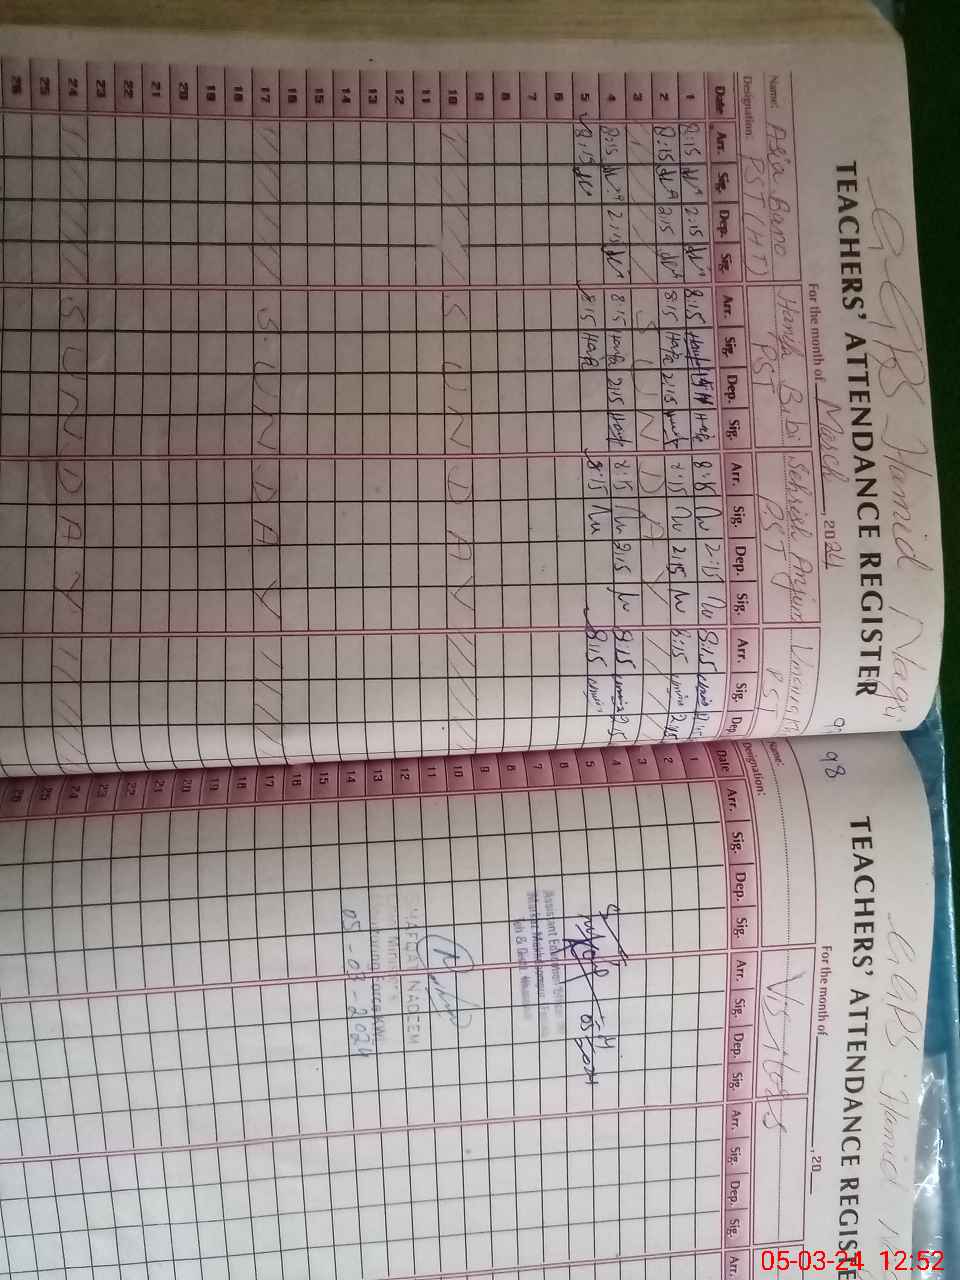 GGPS Hamid Nagri
TEACHERS' ATTENDANCE REGISTER
For the month of March, 2024
Name: Asia Bano Hanfa Bibi Sehrish Anjum
Designation: PST (HT) PST PST PST
Date Arr. Sig. Dep. Sig. Arr. Sig. Dep. Sig. Arr. Sig. Dep. Sig. Arr. Sig. Dep.
1 8:15 2:15 8:15 8:15 2:15 8:15
2 8:15 2:15 8:15 2:15 8:15 2:15 8:15 2:15
3 SUNDAY
4 8:15 2:15 8:15 2:15 8:15 2:15 8:15
5 8:15 8:15 8:15 8:15
6
7
8
9
10 SUNDAY
11
12
13
14
15
16
17 SUNDAY
18
19
20
21
22
23
24 SUNDAY
25
26
98
GGPS Hamid
TEACHERS' ATTENDANCE REGISTE
For the month of , 20
Name: Visitors
Designation:
Date Arr. Sig. Dep. Sig. Arr. Sig. Dep. Sig. Arr. Sig. Dep. Sig. Arr.
1
2
3
4
5
6
7 Assistant Education
8
9
10
11
12 NADEEM
13
14 05-03-2024
15
16
17
18
19
20
21
22
23
24
25
26
05-03-24 12:52